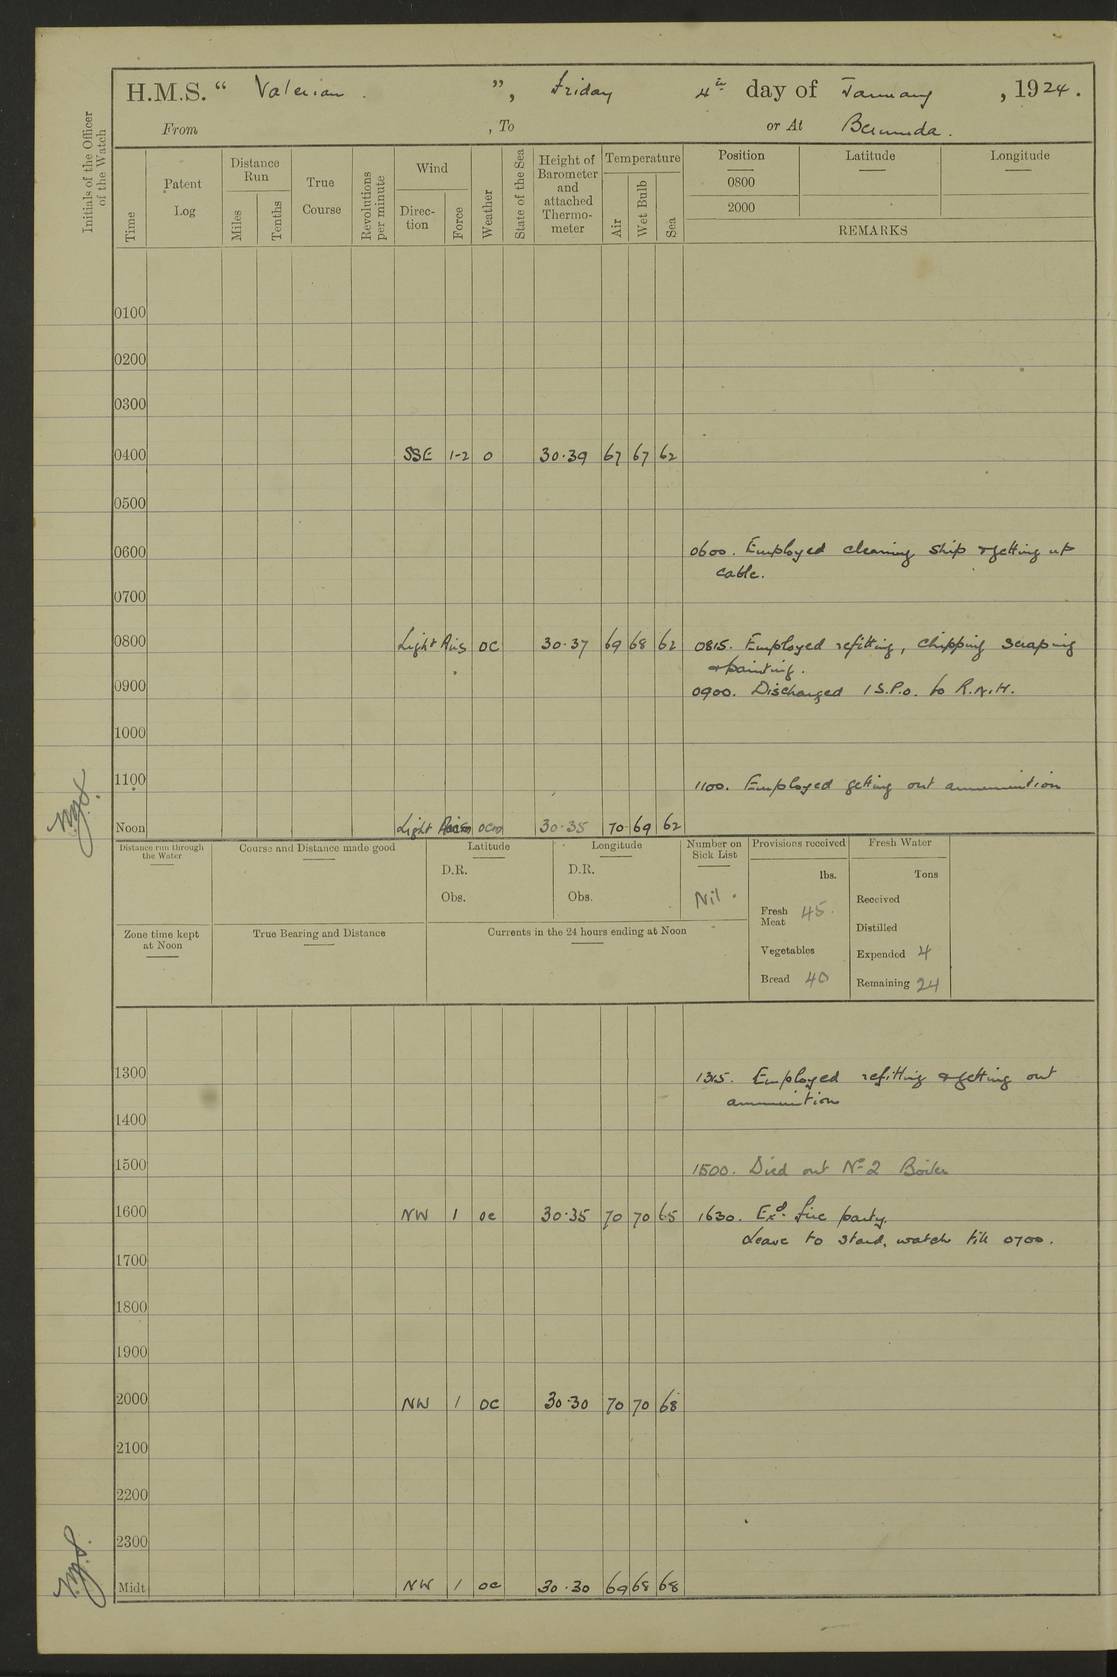 H.M.S. “ Valerian . ”, Friday 4th day of January , 1924.
From , To or At Bermuda.
Initials of the Officer
of the Watch
Time
Patent
Log
Distance
Run
Miles
Tenths
True
Course
Revolutions
per minute
Wind
Direc-
tion
Force
Weather
State of the Sea
Height of
Barometer
and
attached
Thermo-
meter
Temperature
Air
Wet Bulb
Sea
Position Latitude Longitude
0800
2000
REMARKS
0100
0200
0300
0400 SSE 1-2 O 30.39 67 67 62
0500
0600 0600. Employed cleaning ship & getting up
cable.
0700
0800 Light Airs OC 30.37 69 68 62 0815. Employed refitting, chipping scraping
& painting.
0900 0900. Discharged 1 S.P.O. to R.N.H.
1000
1100 1100. Employed getting out ammunition
Noon Light 30.35 70 69 62
Distance run through
the Water
Course and Distance made good
Latitude
D.R.
Obs.
Longitude
D.R.
Obs.
Number on
Sick List
Nil.
Provisions received
lbs.
Fresh
Meat 45
Vegetables
Bread 40
Fresh Water
Tons
Received
Distilled
Expended 4
Remaining 24
Zone time kept
at Noon
True Bearing and Distance
Currents in the 24 hours ending at Noon
1300 1315. Employed refitting & getting out
ammunition
1400
1500 1500. Died out No 2 Boiler
1600 NW 1 oc 30.35 70 70 65 1630. Exd. fire party.
Leave to Starbd. watch till 0700.
1700
1800
1900
2000 NW 1 OC 30.30 70 70 68
2100
2200
2300
Midt NW 1 oc 30.30 69 68 68